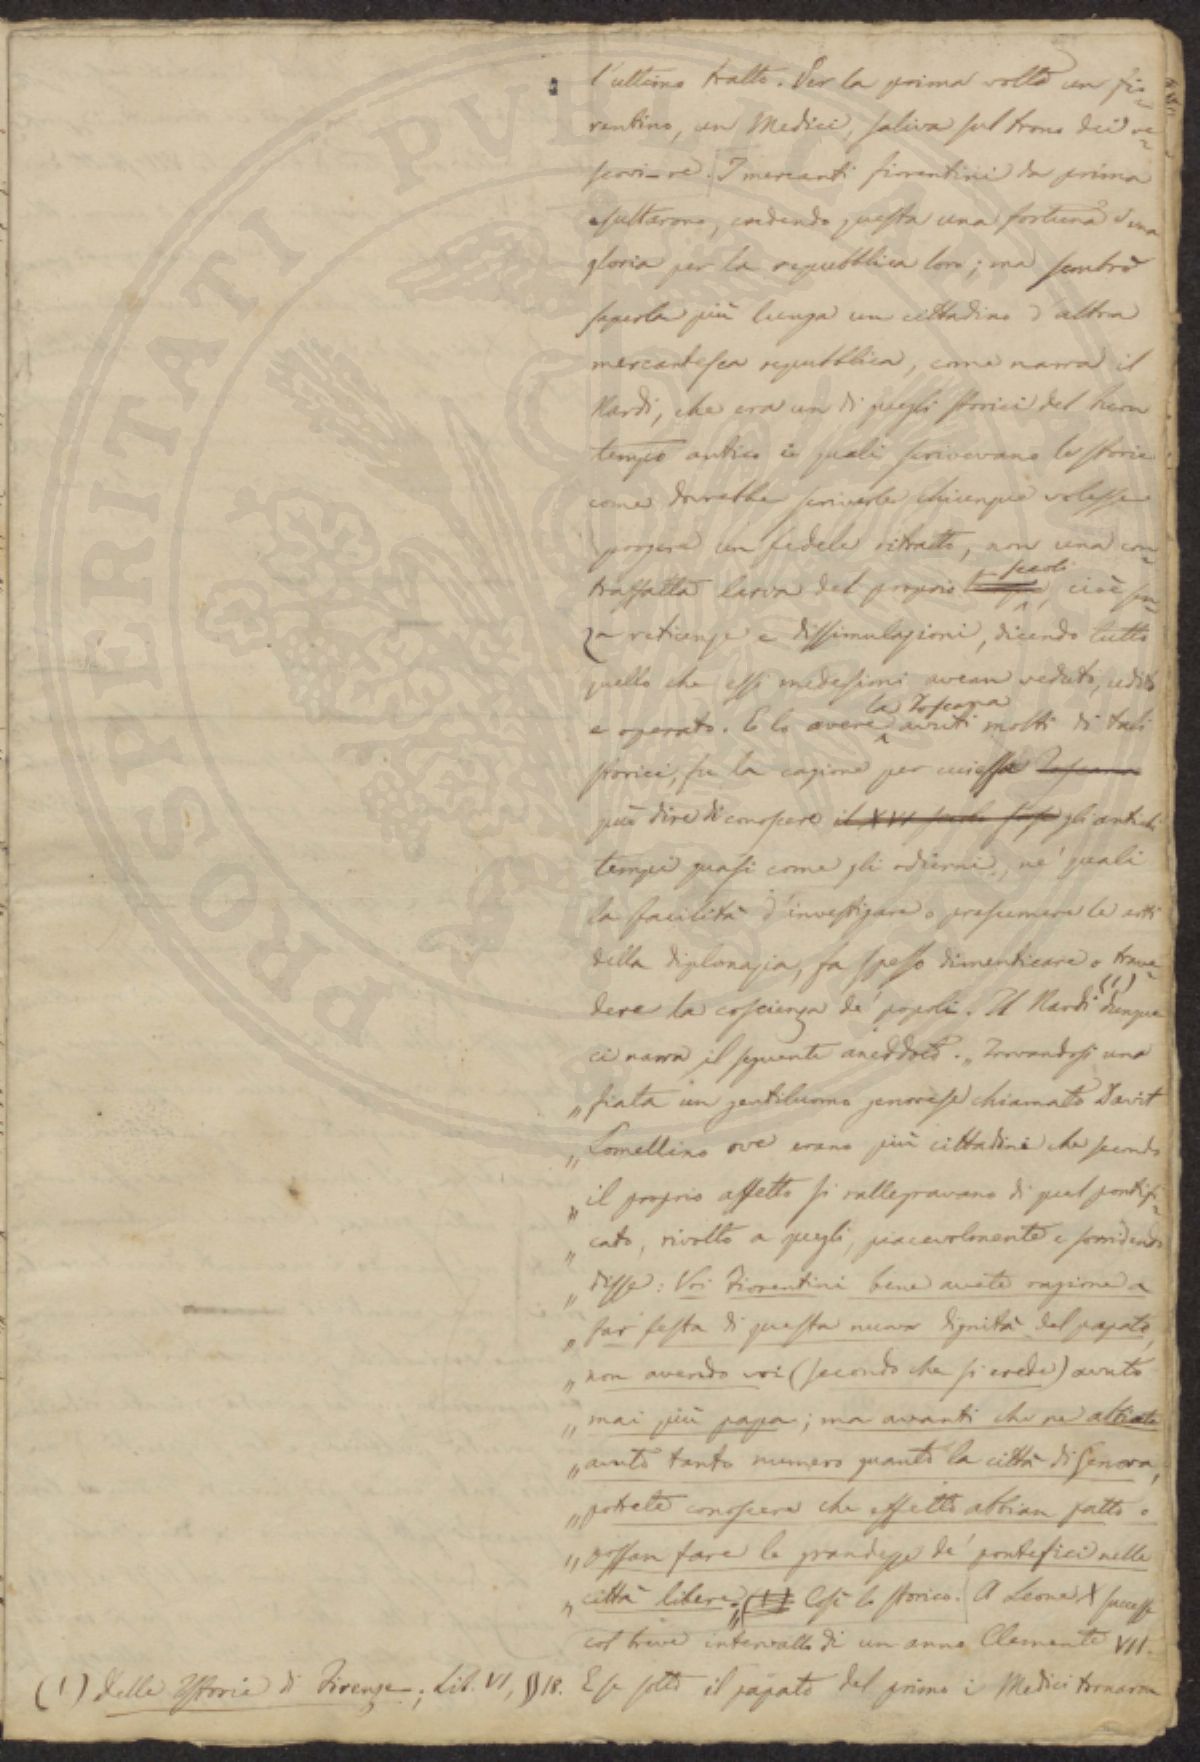 l'ultimo tratto. Per la prima volta un fio-
rentino, un Medici, saliva sul trono dei ve-
scovi-re. I mercanti fiorentini da prima
esultarono, credendo questa una fortuna d'una
gloria per la repubblica loro; ma sembrò
saperla più lunga un cittadino d'altra
mercantesca repubblica, come narra il
Nardi, che era un di quegli storici del buon
tempo antico i quali scrivevano le storie
come dovrebbe scriverle chiunque volesse
porgere un fedele ritratto, non una con-
traffatta larva del proprio secolo, cioè sen-
za reticenze e dissimulazioni, dicendo tutto
quello che essi medesimi avean veduto, udito
e operato. E lo avere la Toscana avuti molti di tali
storici, fu la cagione per cui essa Toscana
può dire di conoscere il XVI secolo gli antichi
tempi quasi come gli odierni, ne' quali
la facilità d'investigare o presumere le arti
della diplomazia, fa spesso dimenticare o trave-
dere la coscienza de' popoli. Il Nardi (1) dunque
ci narra il seguente aneddoto. „Trovandosi una
„ fiata un gentiluomo genovese chiamato Davit
„ Lomellino ove erano più cittadini che secondo
„ il proprio affetto si rallegravano di quel pontifi-
„ cato, rivolto a quegli, piacevolmente e sorridendo
„ disse: Voi Fiorentini bene avete ragione a
„ far festa di questa nuova dignità del papato,
„ non avendo voi (secondo che si crede) avuto
„ mai più papa; ma avanti che ne abbiate
„ avuto tanto numero quanto la città di Genova,
„ potrete conoscere che effetto abbian fatto o
„ possan fare le grandezze de' pontefici nelle
„ città libere.„ (1) Così lo storico. A Leone X successe
col breve intervallo di un anno Clemente VII.
E se sotto il papato del primo i Medici tornarono
(1) Delle Istorie di Firenze; Lib. VI, § 18.